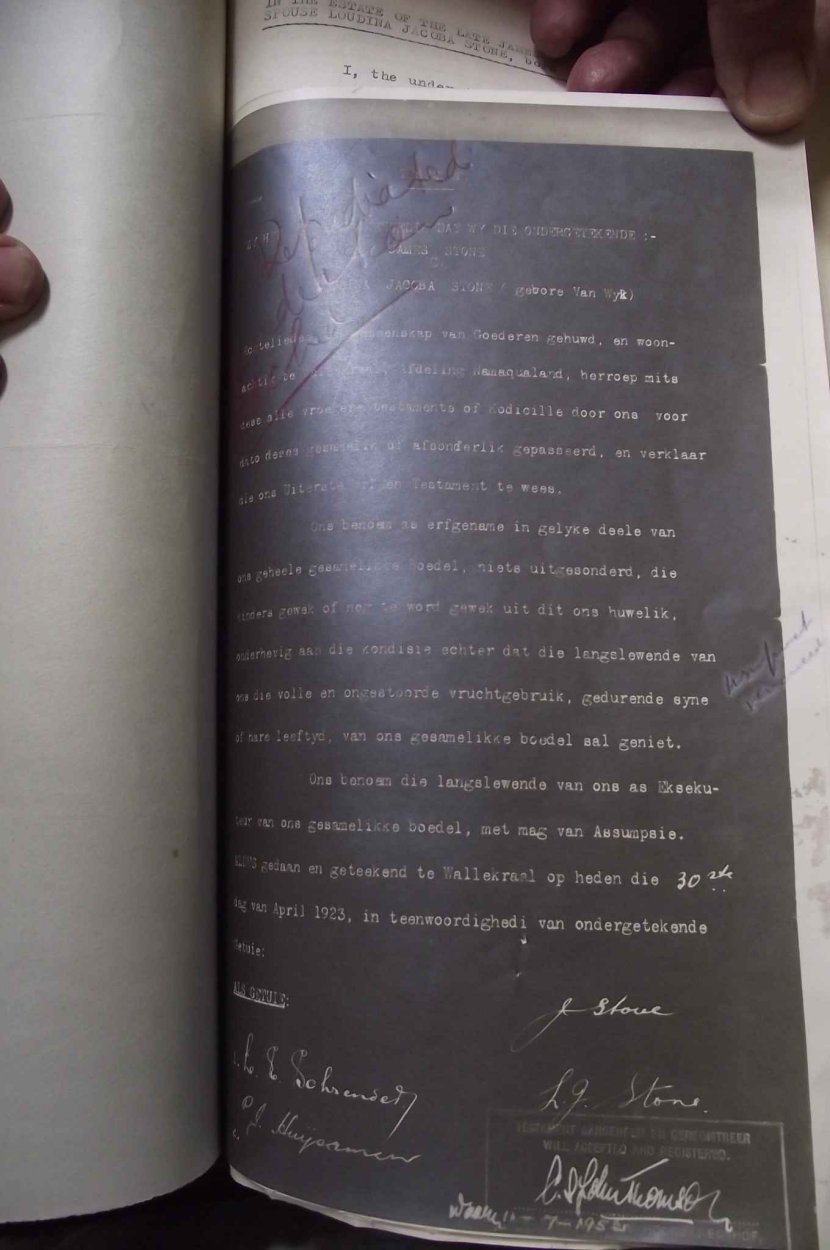 IN THE ESTATE OF THE LATE JAMES
SPOUSE LOUDINA JACOBA STONE,
I, the under
Repudiated
DAT WY DIE ONDERGETEKENDE :-
JAMES STONE
JACOBA STONE ( gebore Van Wyk)
van Goederen gehuwd, en woon-
achtig te afdeling Namaqualand, herroep mits
dese alle vroegere testamente of Kodicille door ons voor
dato deses gesamelik of afsonderlik gepasseerd, en verklaar
die ons Uiterste Wil en Testament te wees.
Ons benoem as erfgename in gelyke deele van
ons geheele gesamelikke boedel, niets uitgesonderd, die
kinders gewek of nog te word gewek uit dit ons huwelik,
onderhevig aan die kondisie echter dat die langslewende van
ons die volle en ongestoorde vruchtgebruik, gedurende syne
of hare leeftyd, van ons gesamelikke boedel sal geniet.
Ons benoem die langslewende van ons as Ekseku-
teur van ons gesamelikke boedel, met mag van Assumpsie.
ALDUS gedaan en geteekend te Wallekraal op heden die 30ste
dag van April 1923, in teenwoordighedi van ondergetekende
Getuie:
ALS GETUIE:
J Stone
L. J. Stone.
P. J. Huysamen
TESTAMENT AANGENEEM EN GEREGISTREER
WILL ACCEPTED AND REGISTERED.